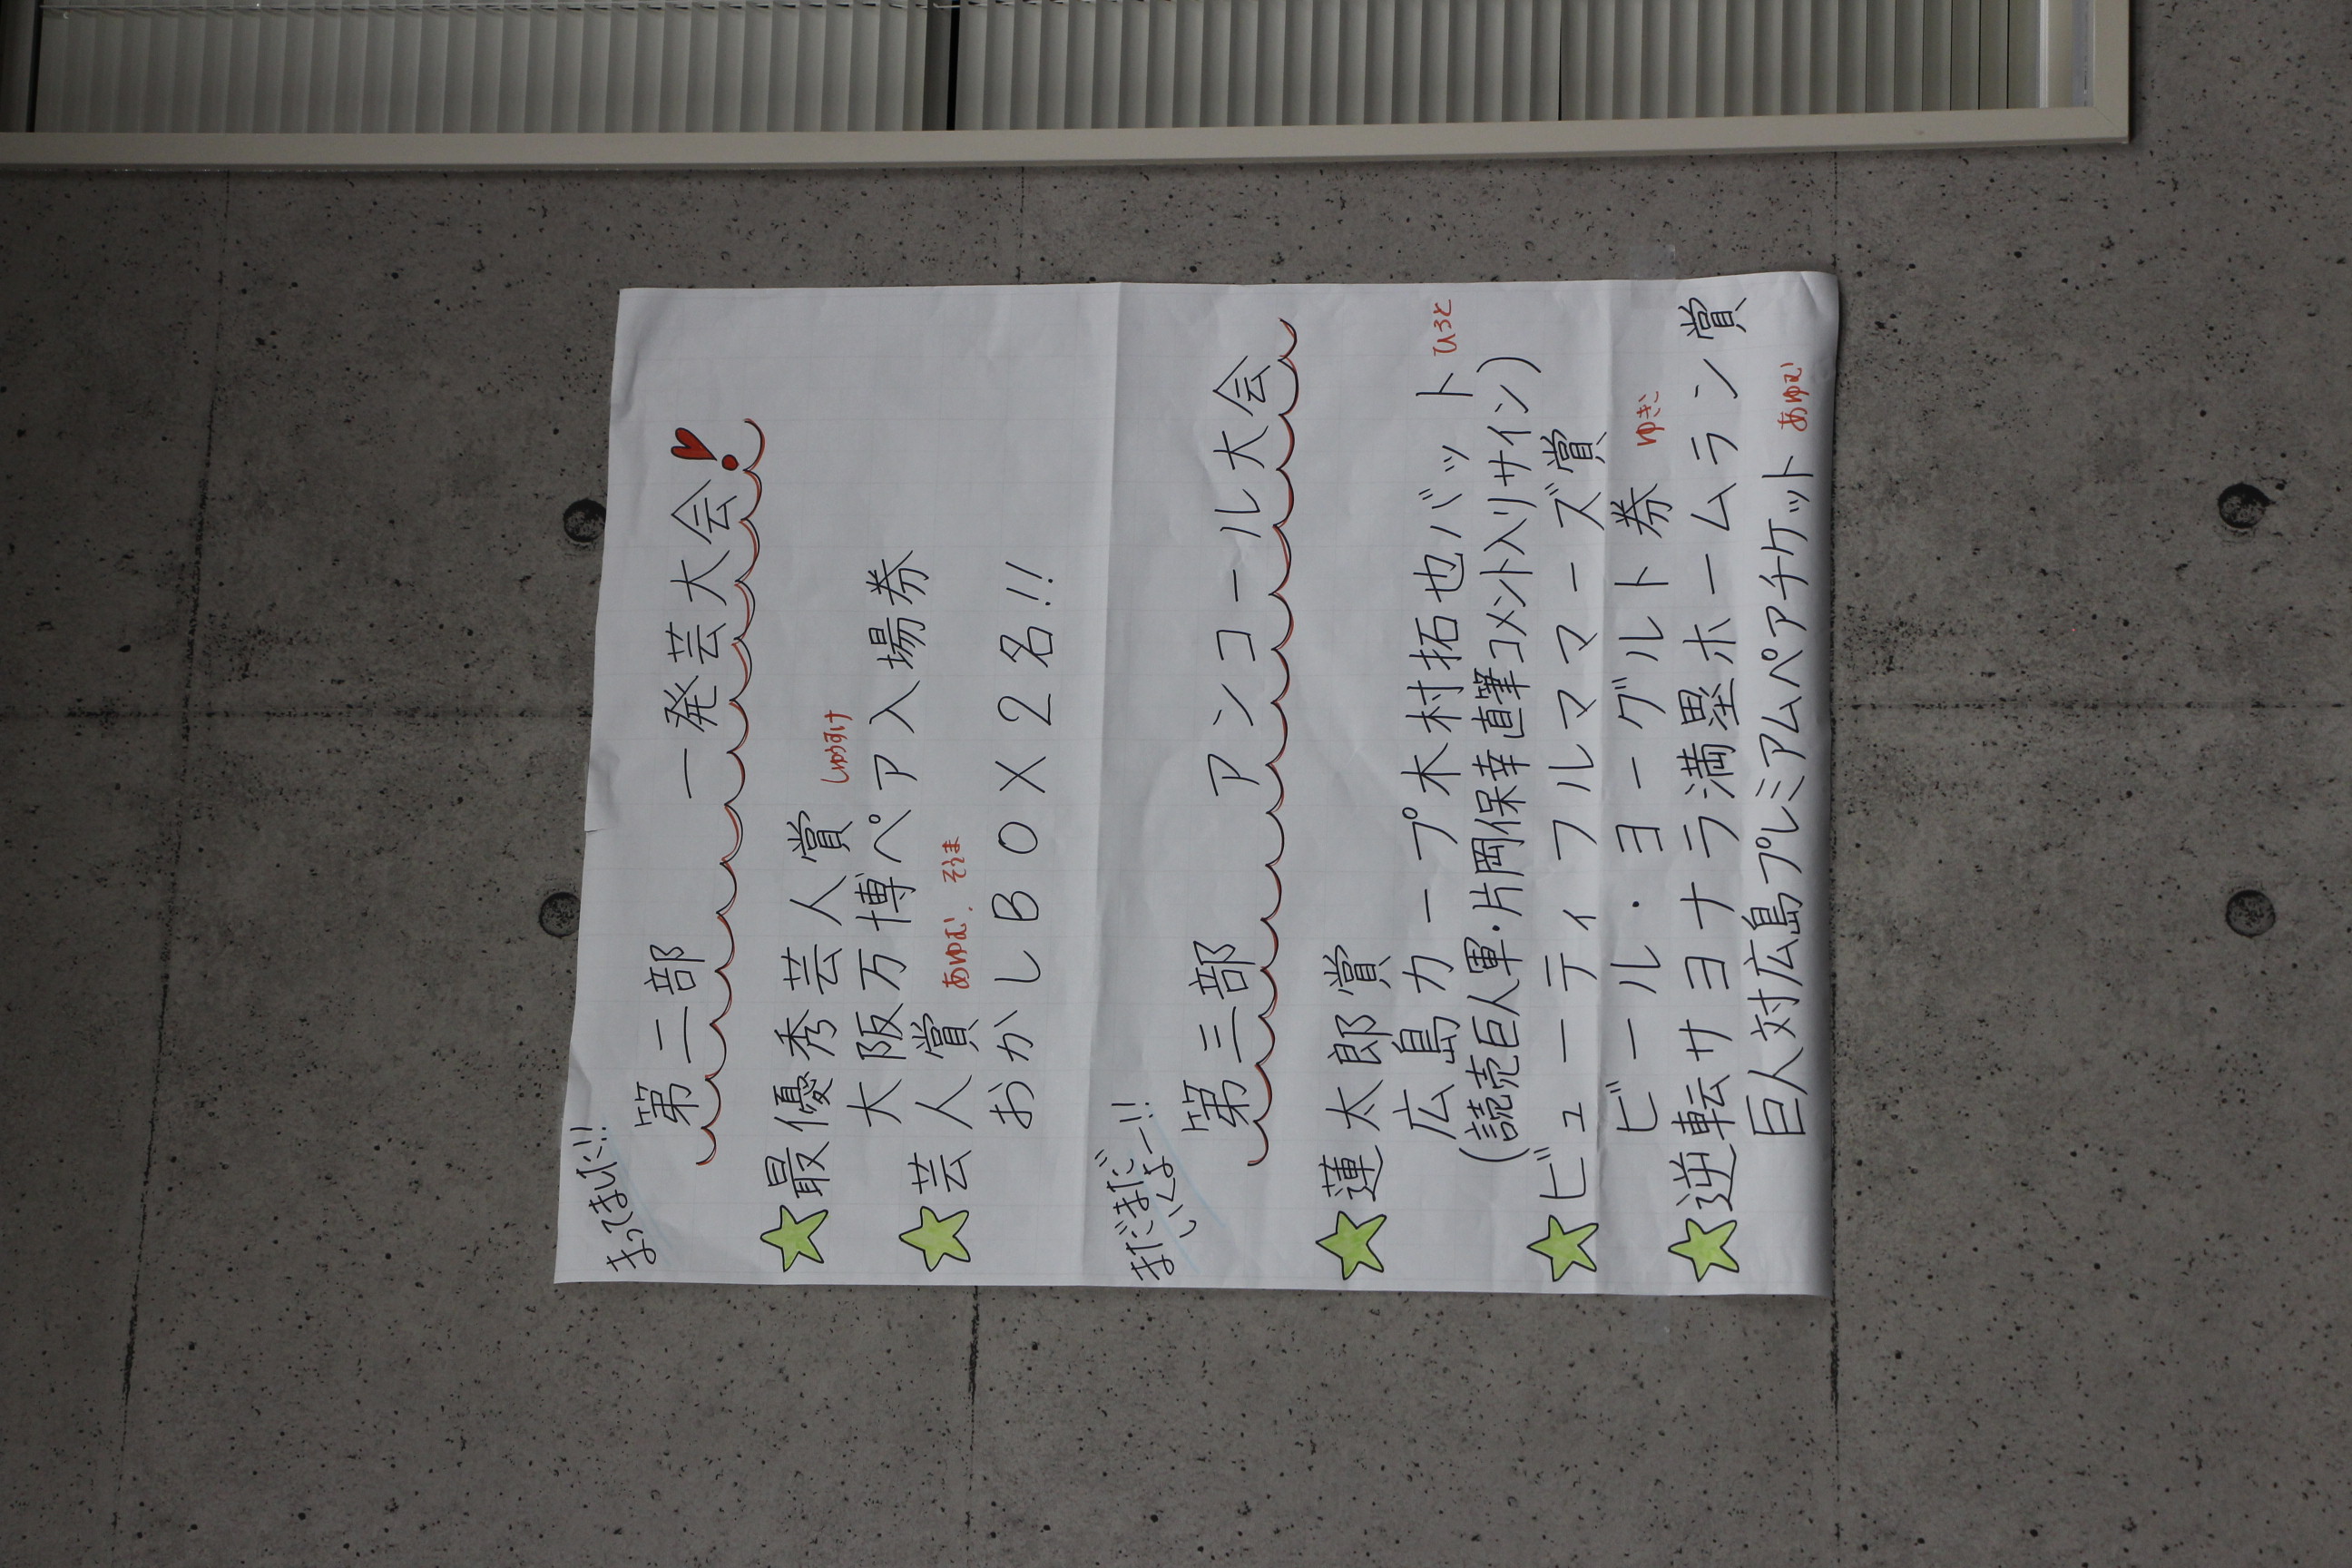 まってました!!
第二部 一発芸大会
最優秀芸人賞
しゅうすけ
大阪万博ペア入場券
芸人賞
あゆむ、そうま
おかしBOX×2名!!
まだまだ
いくよー!!
第三部 アンコール大会
蓮太郎賞
広島カープ木村拓也バット ひろと
(読売巨人軍・片岡保幸直筆コメント入リサイン)
ビューティフルママーズ賞
ビール・ヨーグルト券 ゆきこ
逆転サヨナラ満塁ホームラン賞
巨人対広島プレミアムペアチケット あゆむ